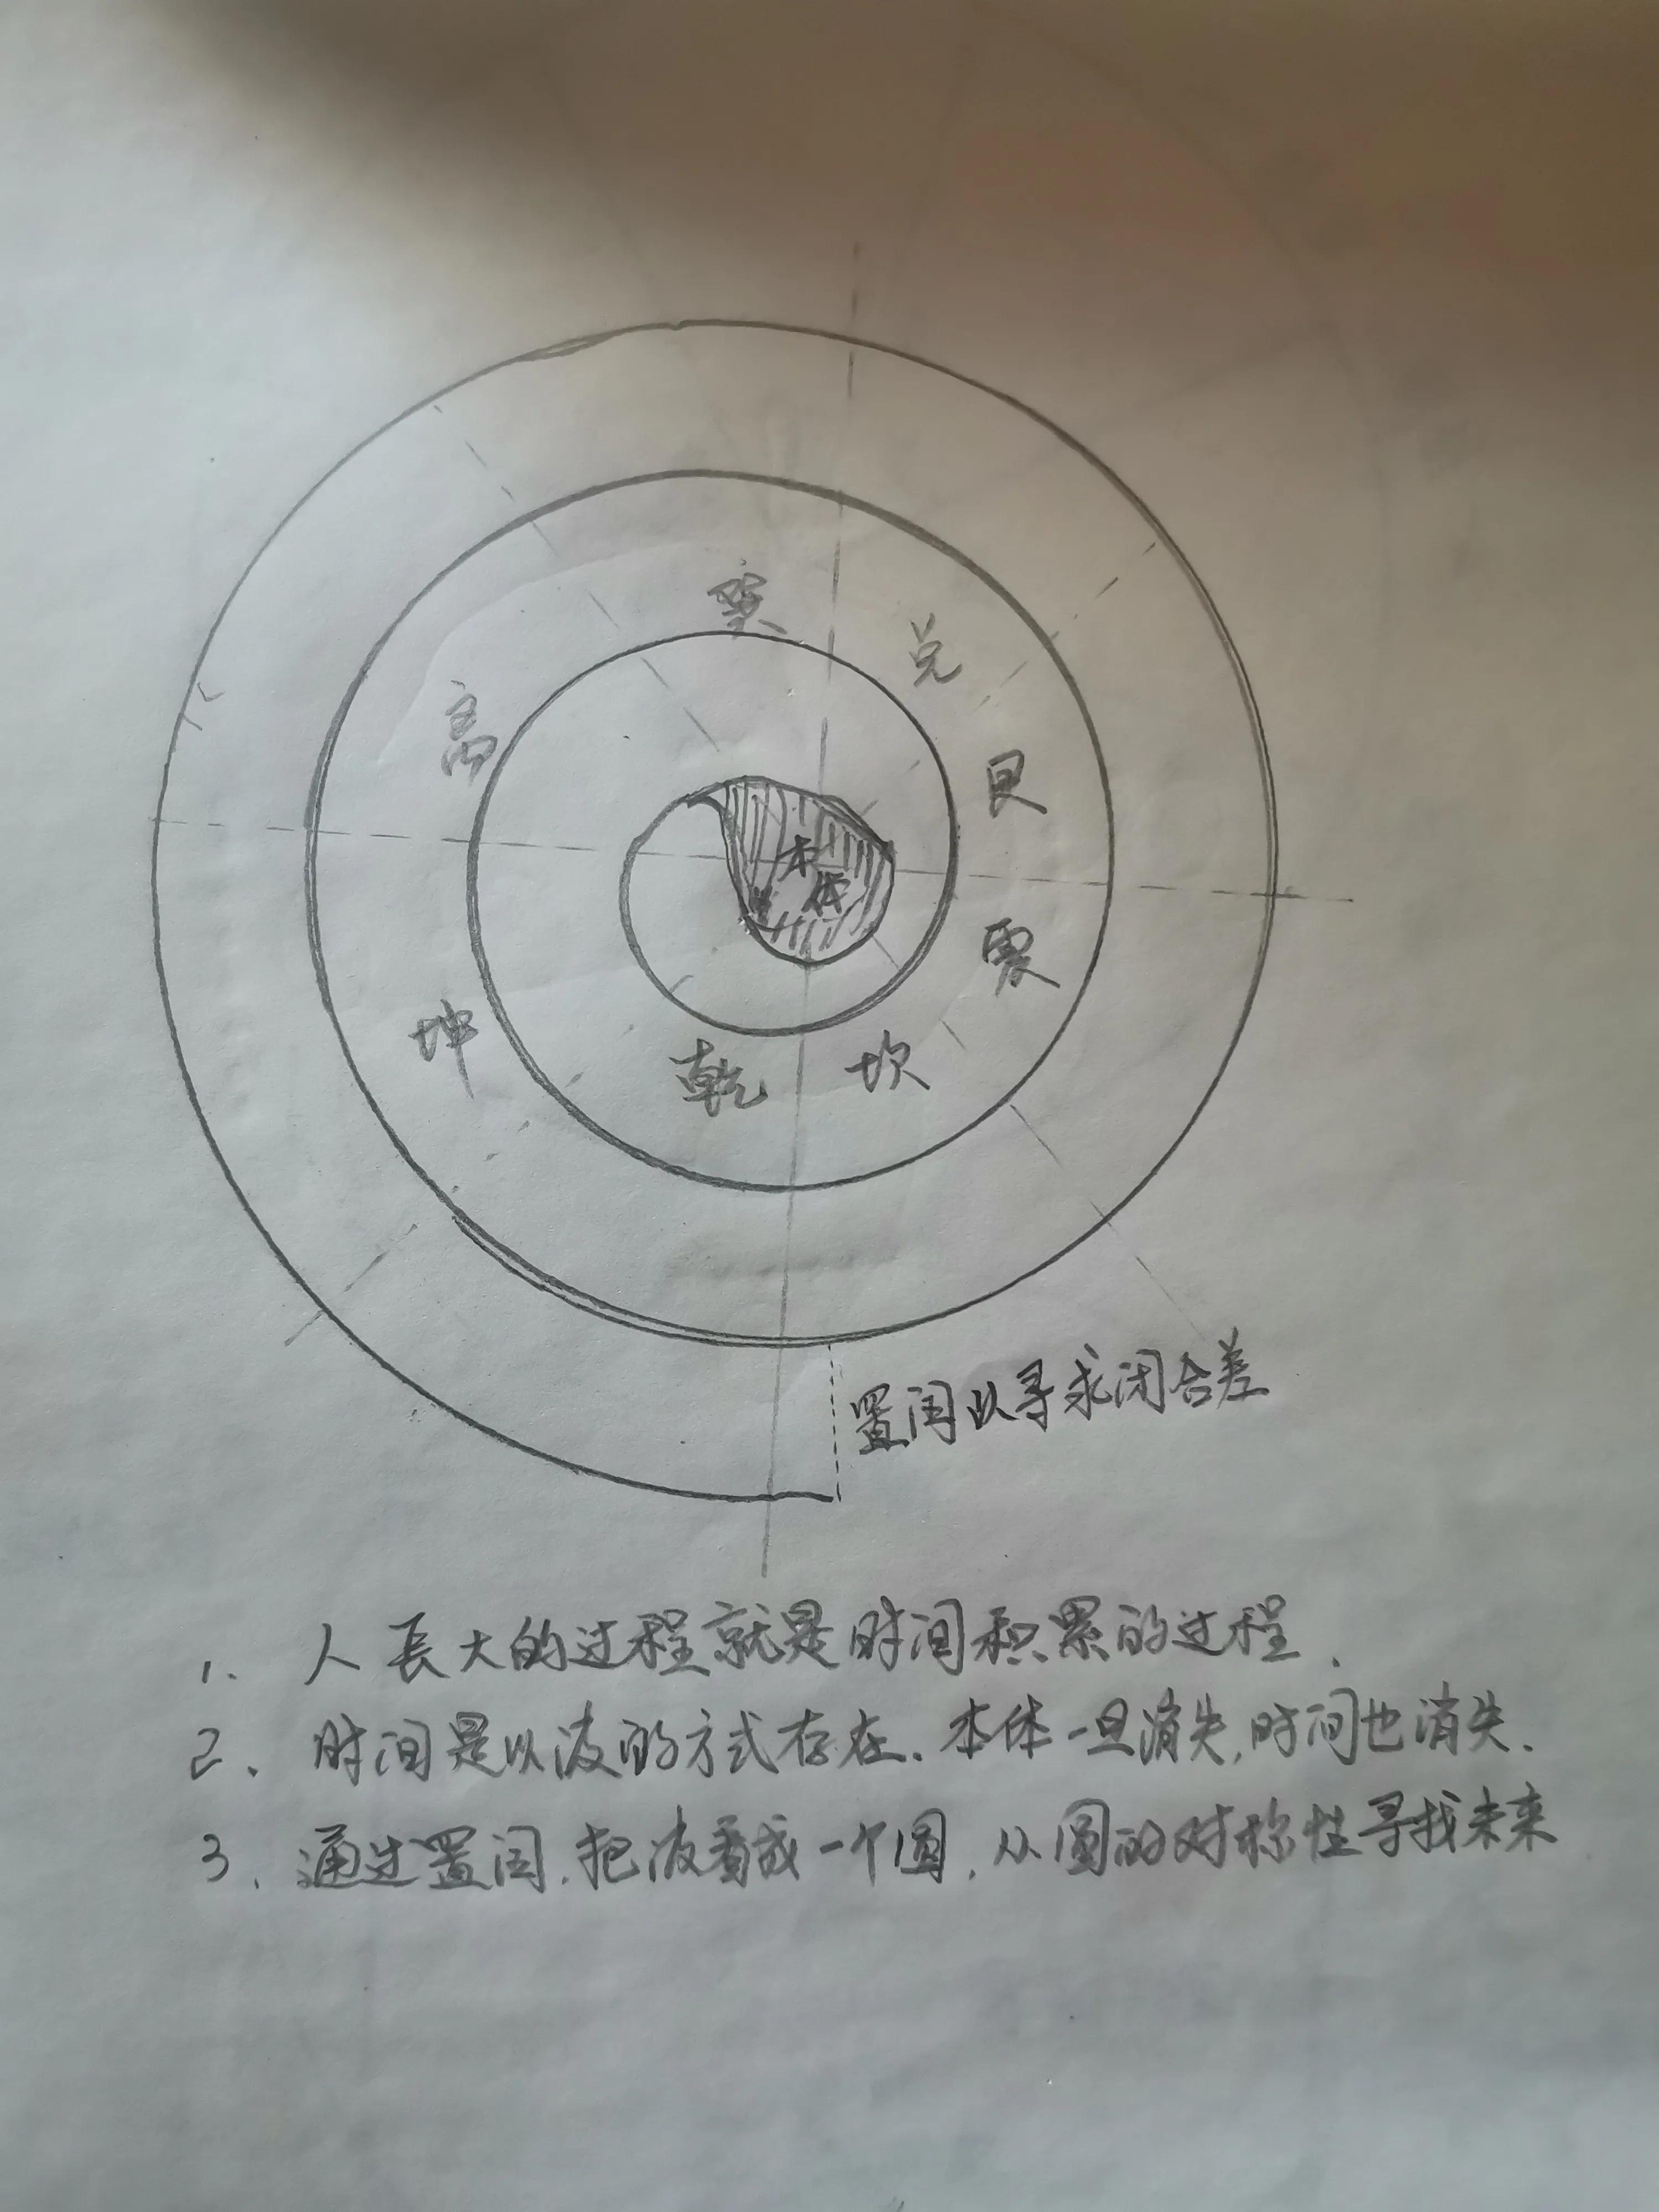 巽
兑
离
艮
本
体
震
坤
乾
坎
置闰以寻求闭合差
1、人長大的过程就是时间积累的过程.
2、时间是以波的方式存在.本体一旦消失,时间也消失.
3、通过置闰.把波看成一个圆,从圆的对称性寻找未来